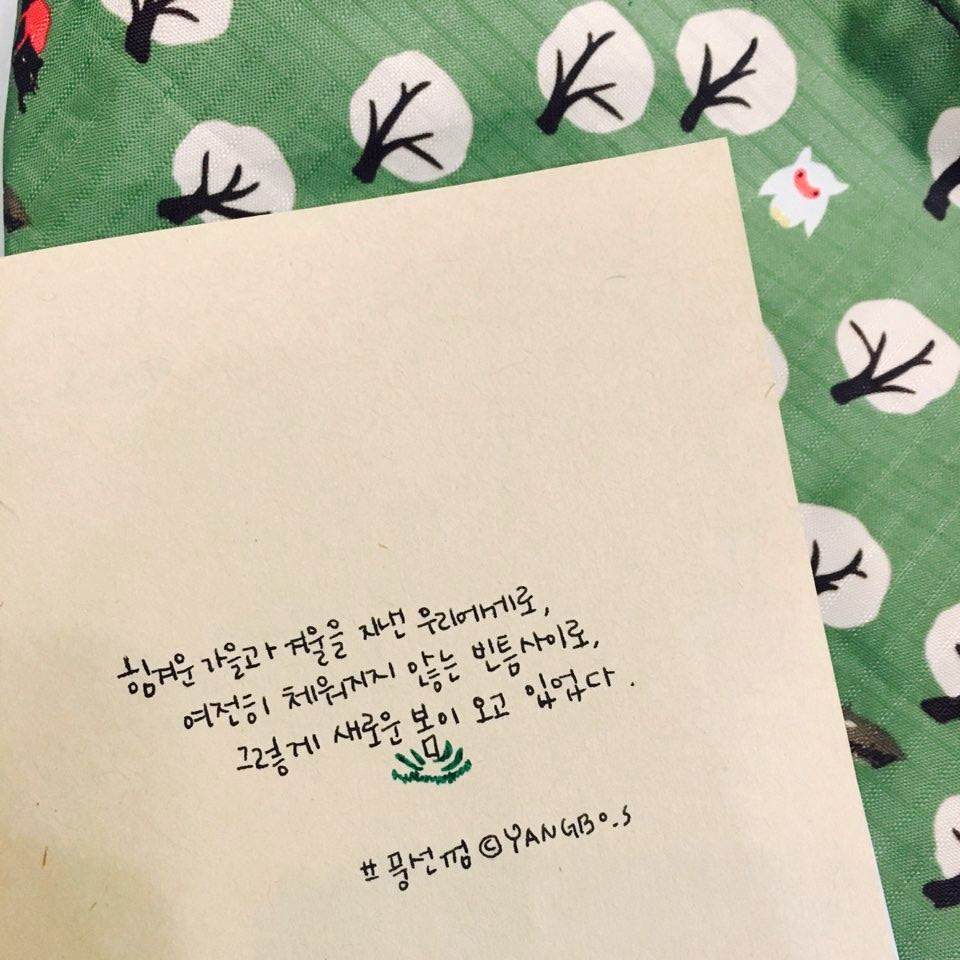 힘겨운 가을과 겨울을 지낸 우리에게로,
여전히 채워지지 않는 빈틈사이로,
그렇게 새로운 봄이 오고 있었다.
#풍선껌 ©YANGBO_S